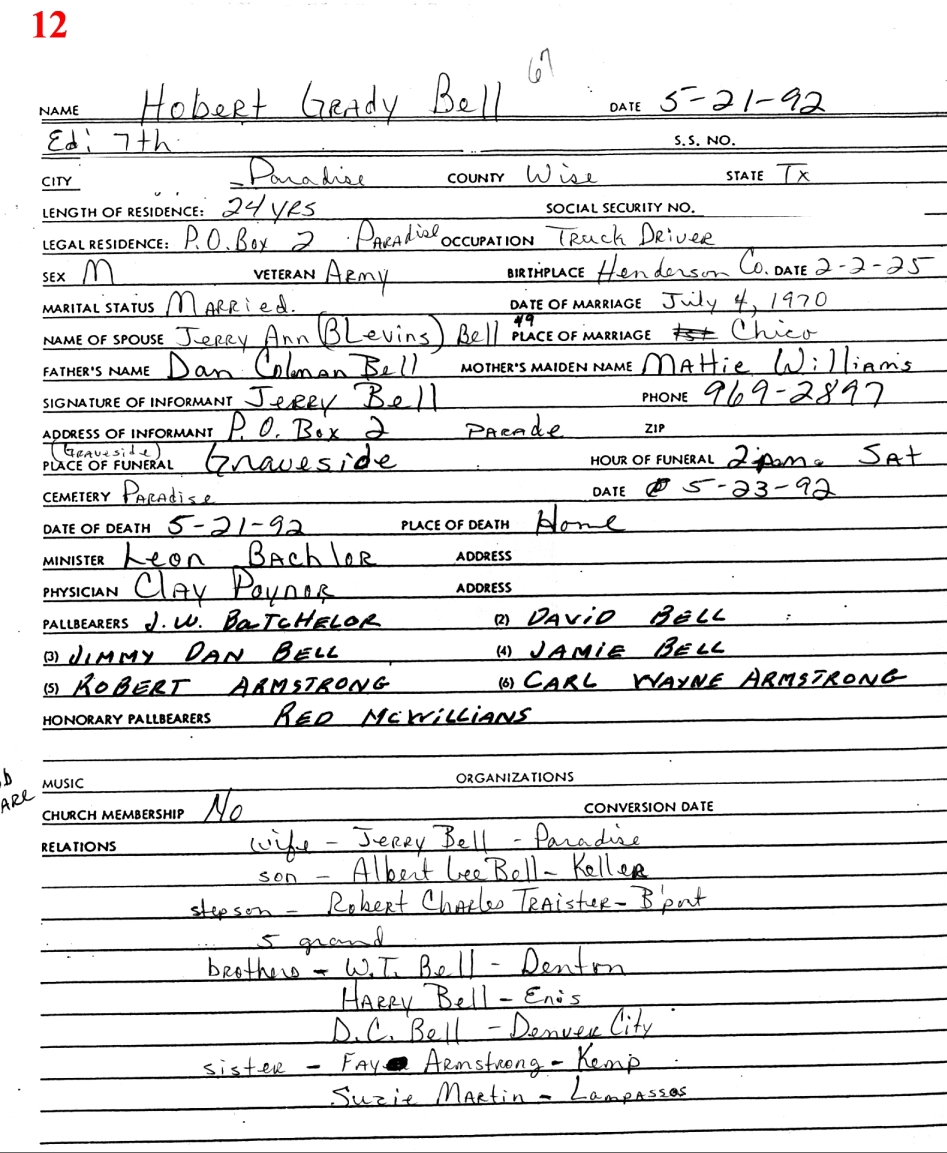 12
67
NAME Hobert Grady Bell DATE 5-21-92
Ed: 7th S.S. NO.
CITY Paradise COUNTY Wise STATE Tx
LENGTH OF RESIDENCE: 24 yrs SOCIAL SECURITY NO.
LEGAL RESIDENCE: P.O. Box 2 Paradise OCCUPATION Truck Driver
SEX M VETERAN Army BIRTHPLACE Henderson Co. DATE 2-2-25
MARITAL STATUS Married. DATE OF MARRIAGE July 4, 1970
NAME OF SPOUSE Jerry Ann (Blevins) Bell 49 PLACE OF MARRIAGE Chico
FATHER'S NAME Dan Colman Bell MOTHER'S MAIDEN NAME Mattie Williams
SIGNATURE OF INFORMANT Jerry Bell PHONE 969-2897
ADDRESS OF INFORMANT P.O. Box 2 Parade ZIP
(Graveside)
PLACE OF FUNERAL Graveside HOUR OF FUNERAL 2 pm. Sat
CEMETERY Paradise DATE 5-23-92
DATE OF DEATH 5-21-92 PLACE OF DEATH Home
MINISTER Leon Bachlor ADDRESS
PHYSICIAN Clay Poynor ADDRESS
PALLBEARERS J.W. BaTCHELOR (2) DAViD BELL
(3) JIMMY DAN BELL (4) JAMiE BELL
(5) ROBERT ARMSTRONG (6) CARL WAYNE ARMSTRONG
HONORARY PALLBEARERS RED McWILLIANS
MUSIC ORGANIZATIONS
CHURCH MEMBERSHIP No CONVERSION DATE
RELATIONS wife - Jerry Bell - Paradise
son - Albert Lee Bell - Keller
stepson - Robert Charles Traister - B'port
5 grand
brothers - W.T. Bell - Denton
Harry Bell - Enis
D.C. Bell - Denver City
sister - Fay Armstrong - Kemp
Suzie Martin - Lampassas